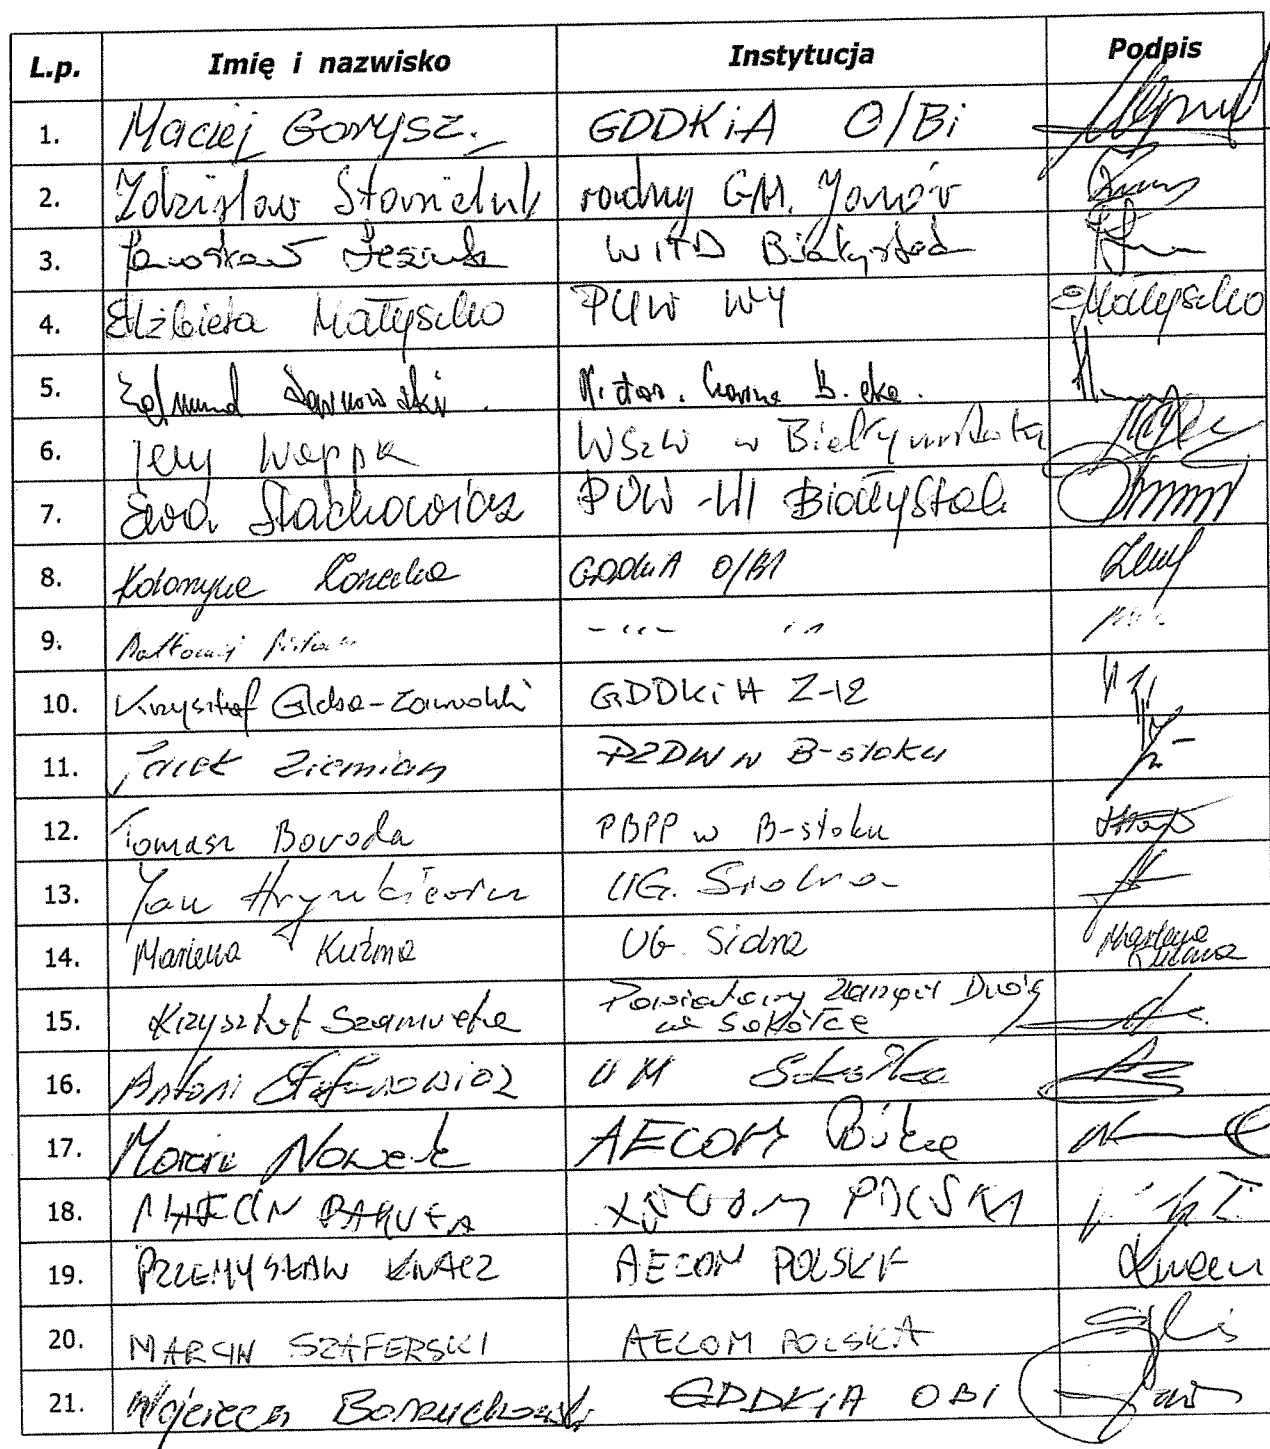 L.p. Imię i nazwisko Instytucja Podpis
1. Maciej Gorysz. GDDKiA O/Bi
2. Zdzisław radny GM. Janów
3. WITD Białystok
4. Elżbieta Małyszko PUW WY EMałyszko
5. Zygmunt
6. Jerzy Wappa WSzW w Białymstoku
7. Ewa Stachowicz PUW - Białystok
8. Katarzyna GDDKiA O/BI
9. - ,, -
10. Krzysztof GDDKiA Z-12
11. Jacek Ziemian PZDW w B-stoku
12. Tomasz Boroda PBPP w B-stoku
13. Jan Hrynkiewicz UG. Sidra
14. Marlena Kuźma UG. Sidra Marlena Kuźma
15. Krzysztof Szamreta Powiatowy Zarząd Dróg
w Sokółce
16. Antoni Stefanowicz UM Sokółka
17. Marcin Nowak AECOM Polska
18. MARCIN POLSKA
19. PRZEMYSŁAW KNACZ AECOM POLSKA
20. MARCIN SZAFERSKI AECOM POLSKA
21. Wojciech Borzuchowski GDDKiA OBI